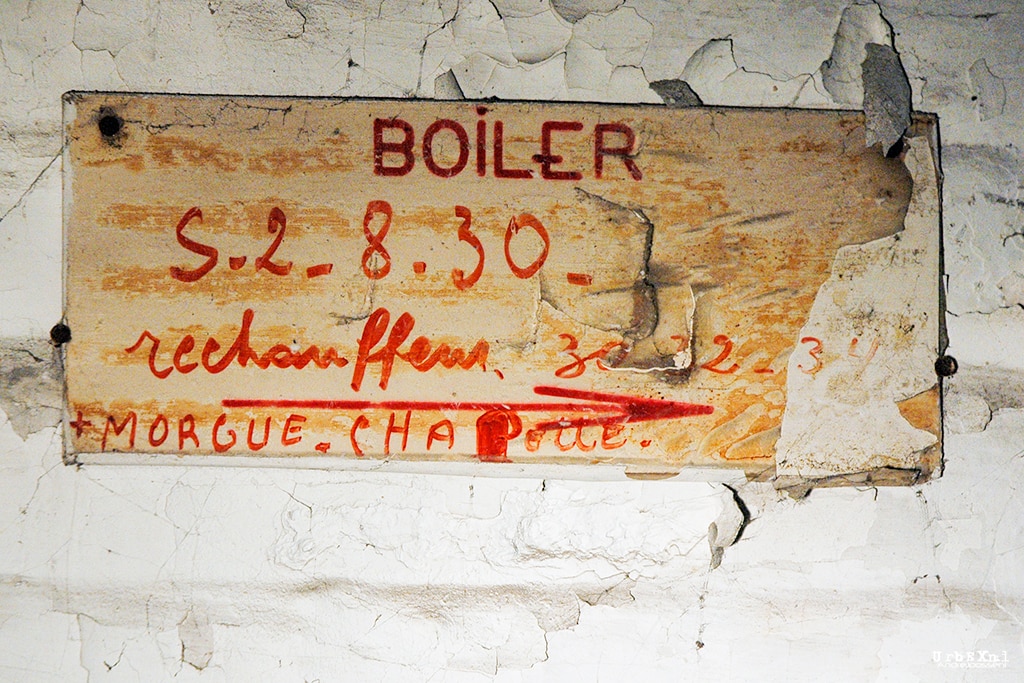 BOiLER
S.2_8.30_
rechauffeur. 30_32_34
+MORGUE_CHAPelle.
UrbEXnl